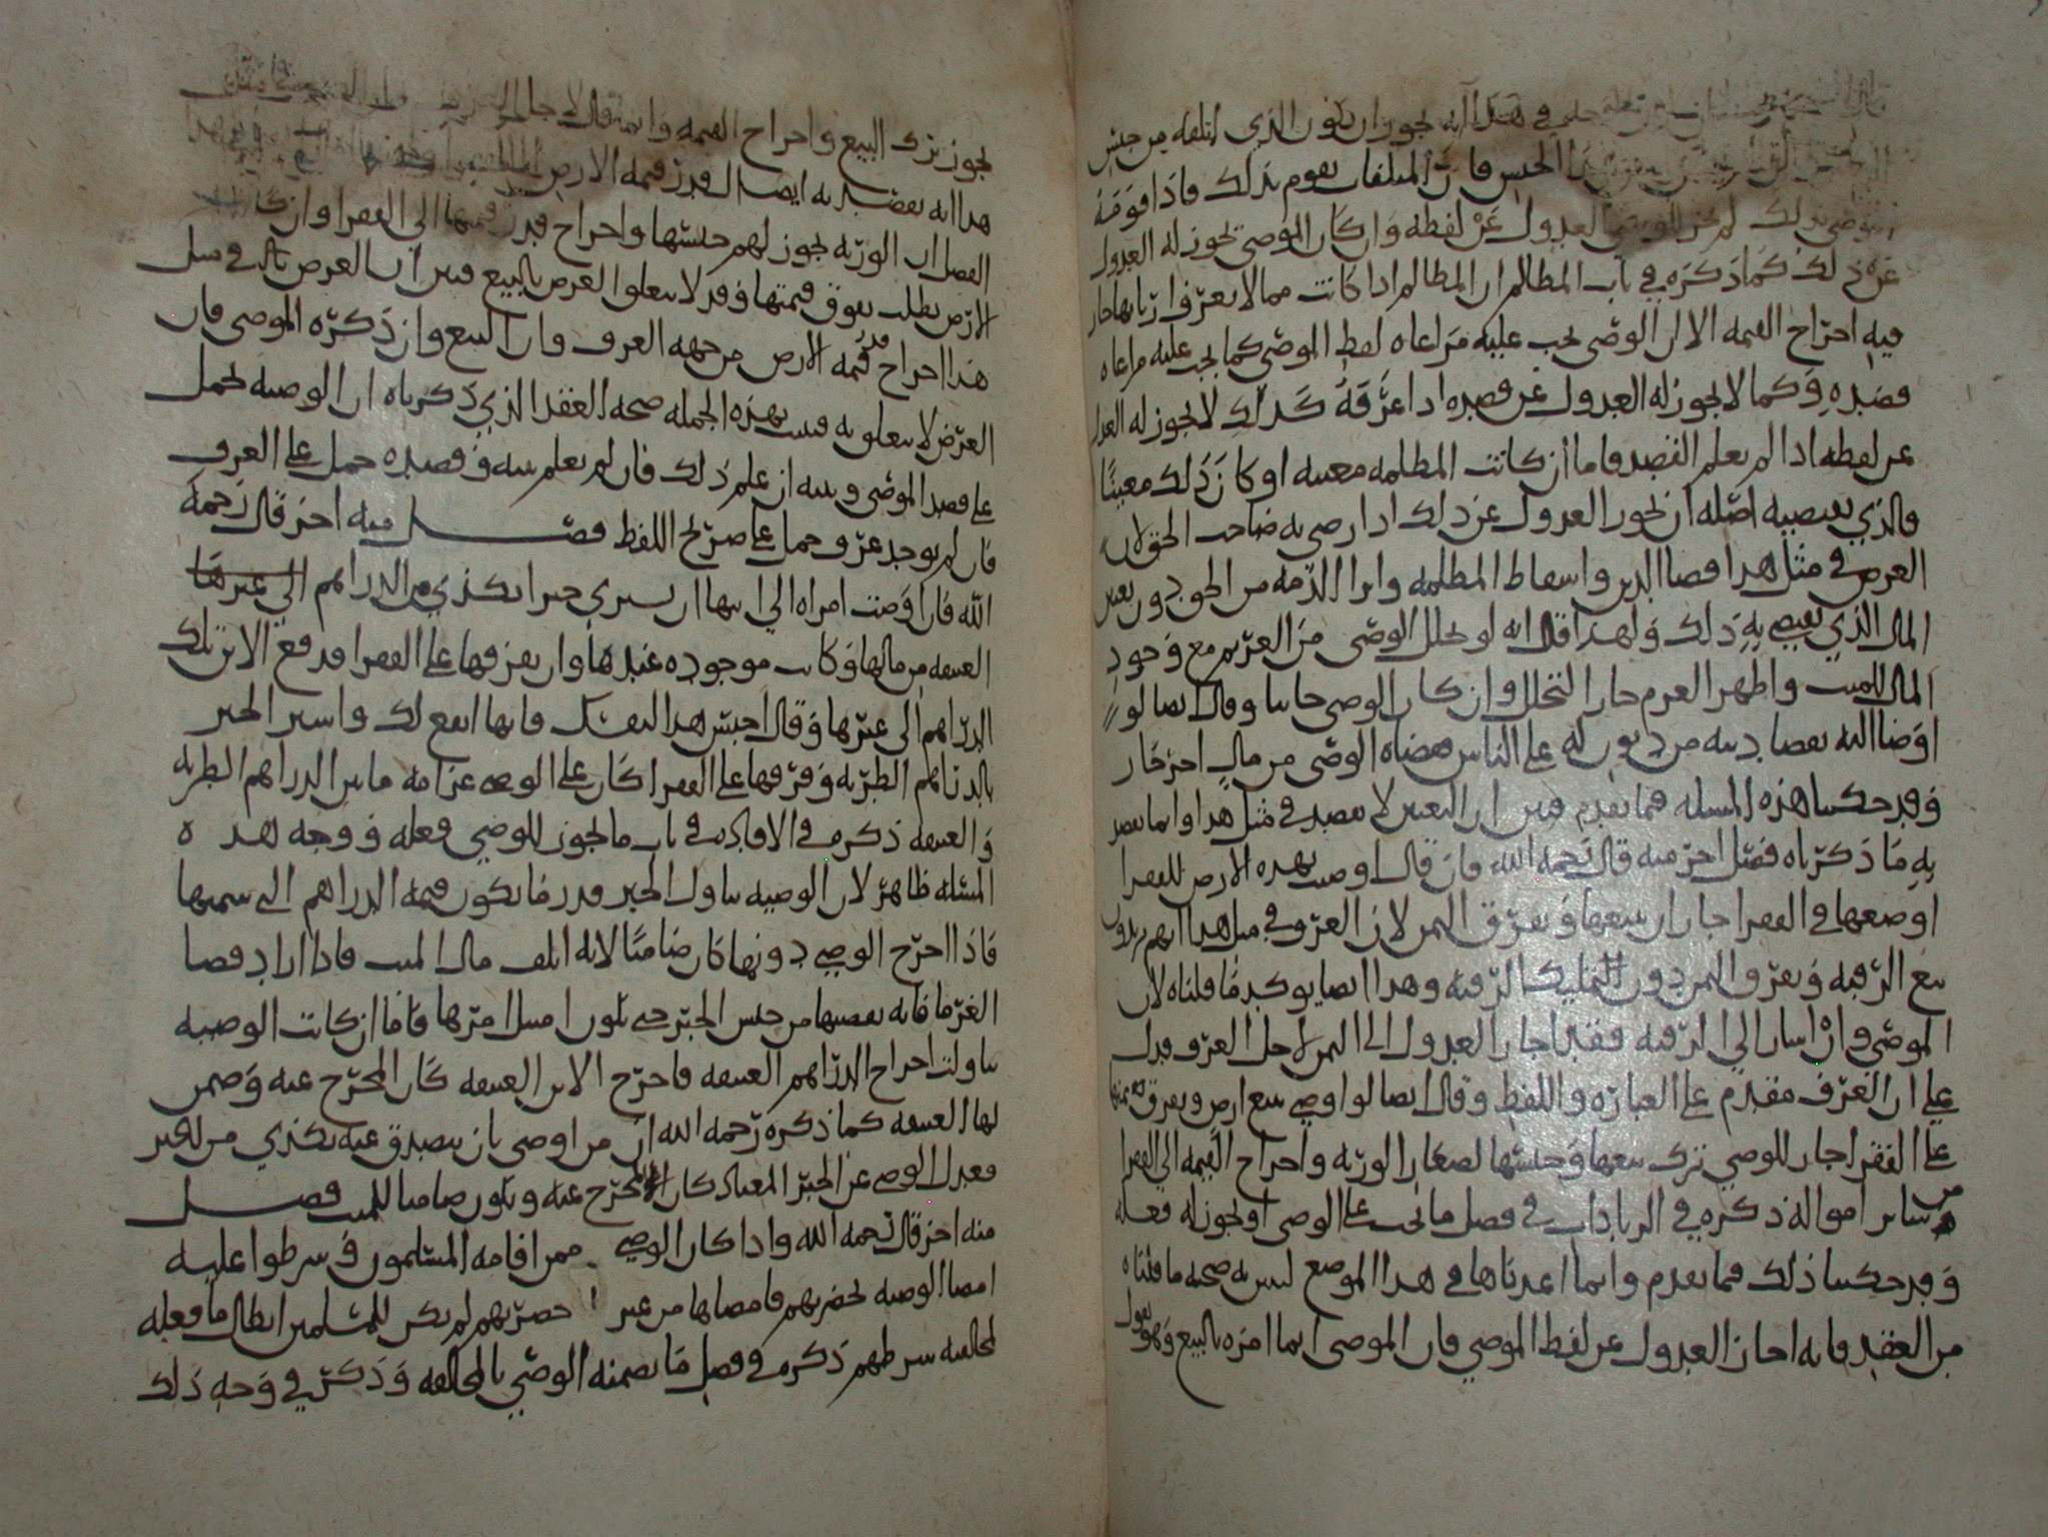 في هذا انه يجوز ان يكون الذي اتلفه من جنس
الجنس فان المتلفات يقوم بذلك فاذا قومه
الموصي بذلك لم يجز للوصي العدول عن لفظه وان كان الموصي يجوز له العدول
عن ذلك كما ذكره في باب المظالم ان المظالم اذا كانت مما لا يعرف اربابها جاز
فيه اخراج القيمه الا ان الوصي يجب عليه مراعاه لفظ الموصي كما يجب عليه مراعاه
قصده وكما لا يجوز له العدول عن قصده اذا عرفه كذلك لا يجوز له العدول
عن لفظه اذا لم يعلم القصد فاما ان كانت المظلمه معينه او كان ذلك معينا
فالذي يقتضيه اصله ان يجوز العدول عن ذلك اذا رضي به صاحب الحق لان
الغرض في مثل هذا قضا الدين واسقاط المظلمه وابرا الذمه من الحق دون تعين
المال الذي يقضى به ذلك ولهذا قال انه لو تخلل الوصي من الغريم مع وجود
المال للميت واظهر الغرم جاز التخلل وان كان الوصي خاينا وقال ايضا لو
اوصا اليه بقضا دينه من ديون له على الناس فقضاه الوصي من مال اخر جاز
وقد حكينا هذه المسله فيما تقدم فبين ان التعين لا يقصد في مثل هذا وانما يقصد
به ما ذكرناه فصل اخر منه قال رحمه الله فان قال اوصيت بهذه الارض للفقرا
او ضعها في الفقرا جاز ان يبيعها ويفرق الثمن لان العرف في مثل هذا انهم يريدون
بيع الرقبه وتفرق الثمن دون تمليك الرقبه وهذا ايضا يوكد ما قلناه لان
الموصي وان اشار الى الرقبه فقد اجاز العدول الى الثمن لاجل العرف فدل
على ان العرف مقدم على العباره واللفظ وقال ايضا لو اوصى ببيع ارض وتفرق ثمنها
على الفقرا جاز للوصي ترك بيعها وحبسها لصغار الورثه واخراج القيمه الى الفقرا
من ساير امواله ذكره في الزيادات في فصل ما يجب على الوصي او يجوز له فعله
وقد حكينا ذلك فيما تقدم وانما اعدناها في هذا الموضع ليبين به صحه ما قلناه
من العقد فانه اجاز العدول عن لفظ الموصي فان الموصي انما امره بالبيع وهو يقول
يجوز ترك البيع واخراج القيمه وانما قال لاجل
هذا انه يقصد به ايصال قدر قيمه الارض
الفصل ان الورثه يجوز لهم حبسها واخراج قدر قيمتها الى الفقرا وان كانت
الارض تطلب بفوق قيمتها وقد لا يتعلق الغرض بالبيع فبين ان الغرض في مثل
هذا اخراج قدر قيمه الارض من جهه العرف وان البيع وان ذكره الموصي فان
الغرض لا يتعلق به فثبت بهذه الجمله صحه العقد الذي ذكرناه ان الوصيه تحمل
على قصد الموصي ونيته ان علم ذلك فان لم يعلم نيته وقصده حمل على العرف
فان لم يوجد عرف حمل على صريح اللفظ فصل منه اخر قال رحمه
الله فان اوصت امراه الى ابنها ان يشتري خبزا بكذي من الدراهم الى غيرها
العتيقه من مالها وكانت موجوده عندها وان يفرقها على الفقرا فدفع الابن تلك
الدراهم الى غيرها وقال احبس هذا لنفسك فانها انفع لك واشتر الخبز
بالدراهم الطريه وفرقها على الفقرا كان على الوصي غرامه ما بين الدراهم الطريه
والعتيقه ذكره في الافاده في باب ما يجوز للوصي فعله ووجه هذه
المسله ظاهر لان الوصيه تناول الخبز قدر ما يكون قيمه الدراهم التي سمتها
فاذا اخرج الوصي دونها كان ضامنا لانه اتلف مال الميت فاذا اراد قضا
الغرما فانه يقضيها من جنس الخبز حتى يكون امتثل امرها فاما ان كانت الوصيه
تناولت اخراج الدراهم العتيقه فاخرج الابن العتيقه كان المخرج عنه وضمن
لها العتيقه كما ذكره رحمه الله ان من اوصى بان يتصدق عنه بكذي من الخبز
فعدل الوصي عن الخبز المعتاد كان المخرج عنه ويكون ضامنا للميت فصل
منه اخر قال رحمه الله واذا كان الوصي ممن اقامه المسلمون وشرطوا عليه
امضا الوصيه بحضرتهم فامضاها من غير حضرتهم لم يكن للمسلمين ابطال ما فعله
لمخالفته شرطهم ذكره في فصل ما يضمنه الوصي بالمخالفه وذكر في وجه ذلك